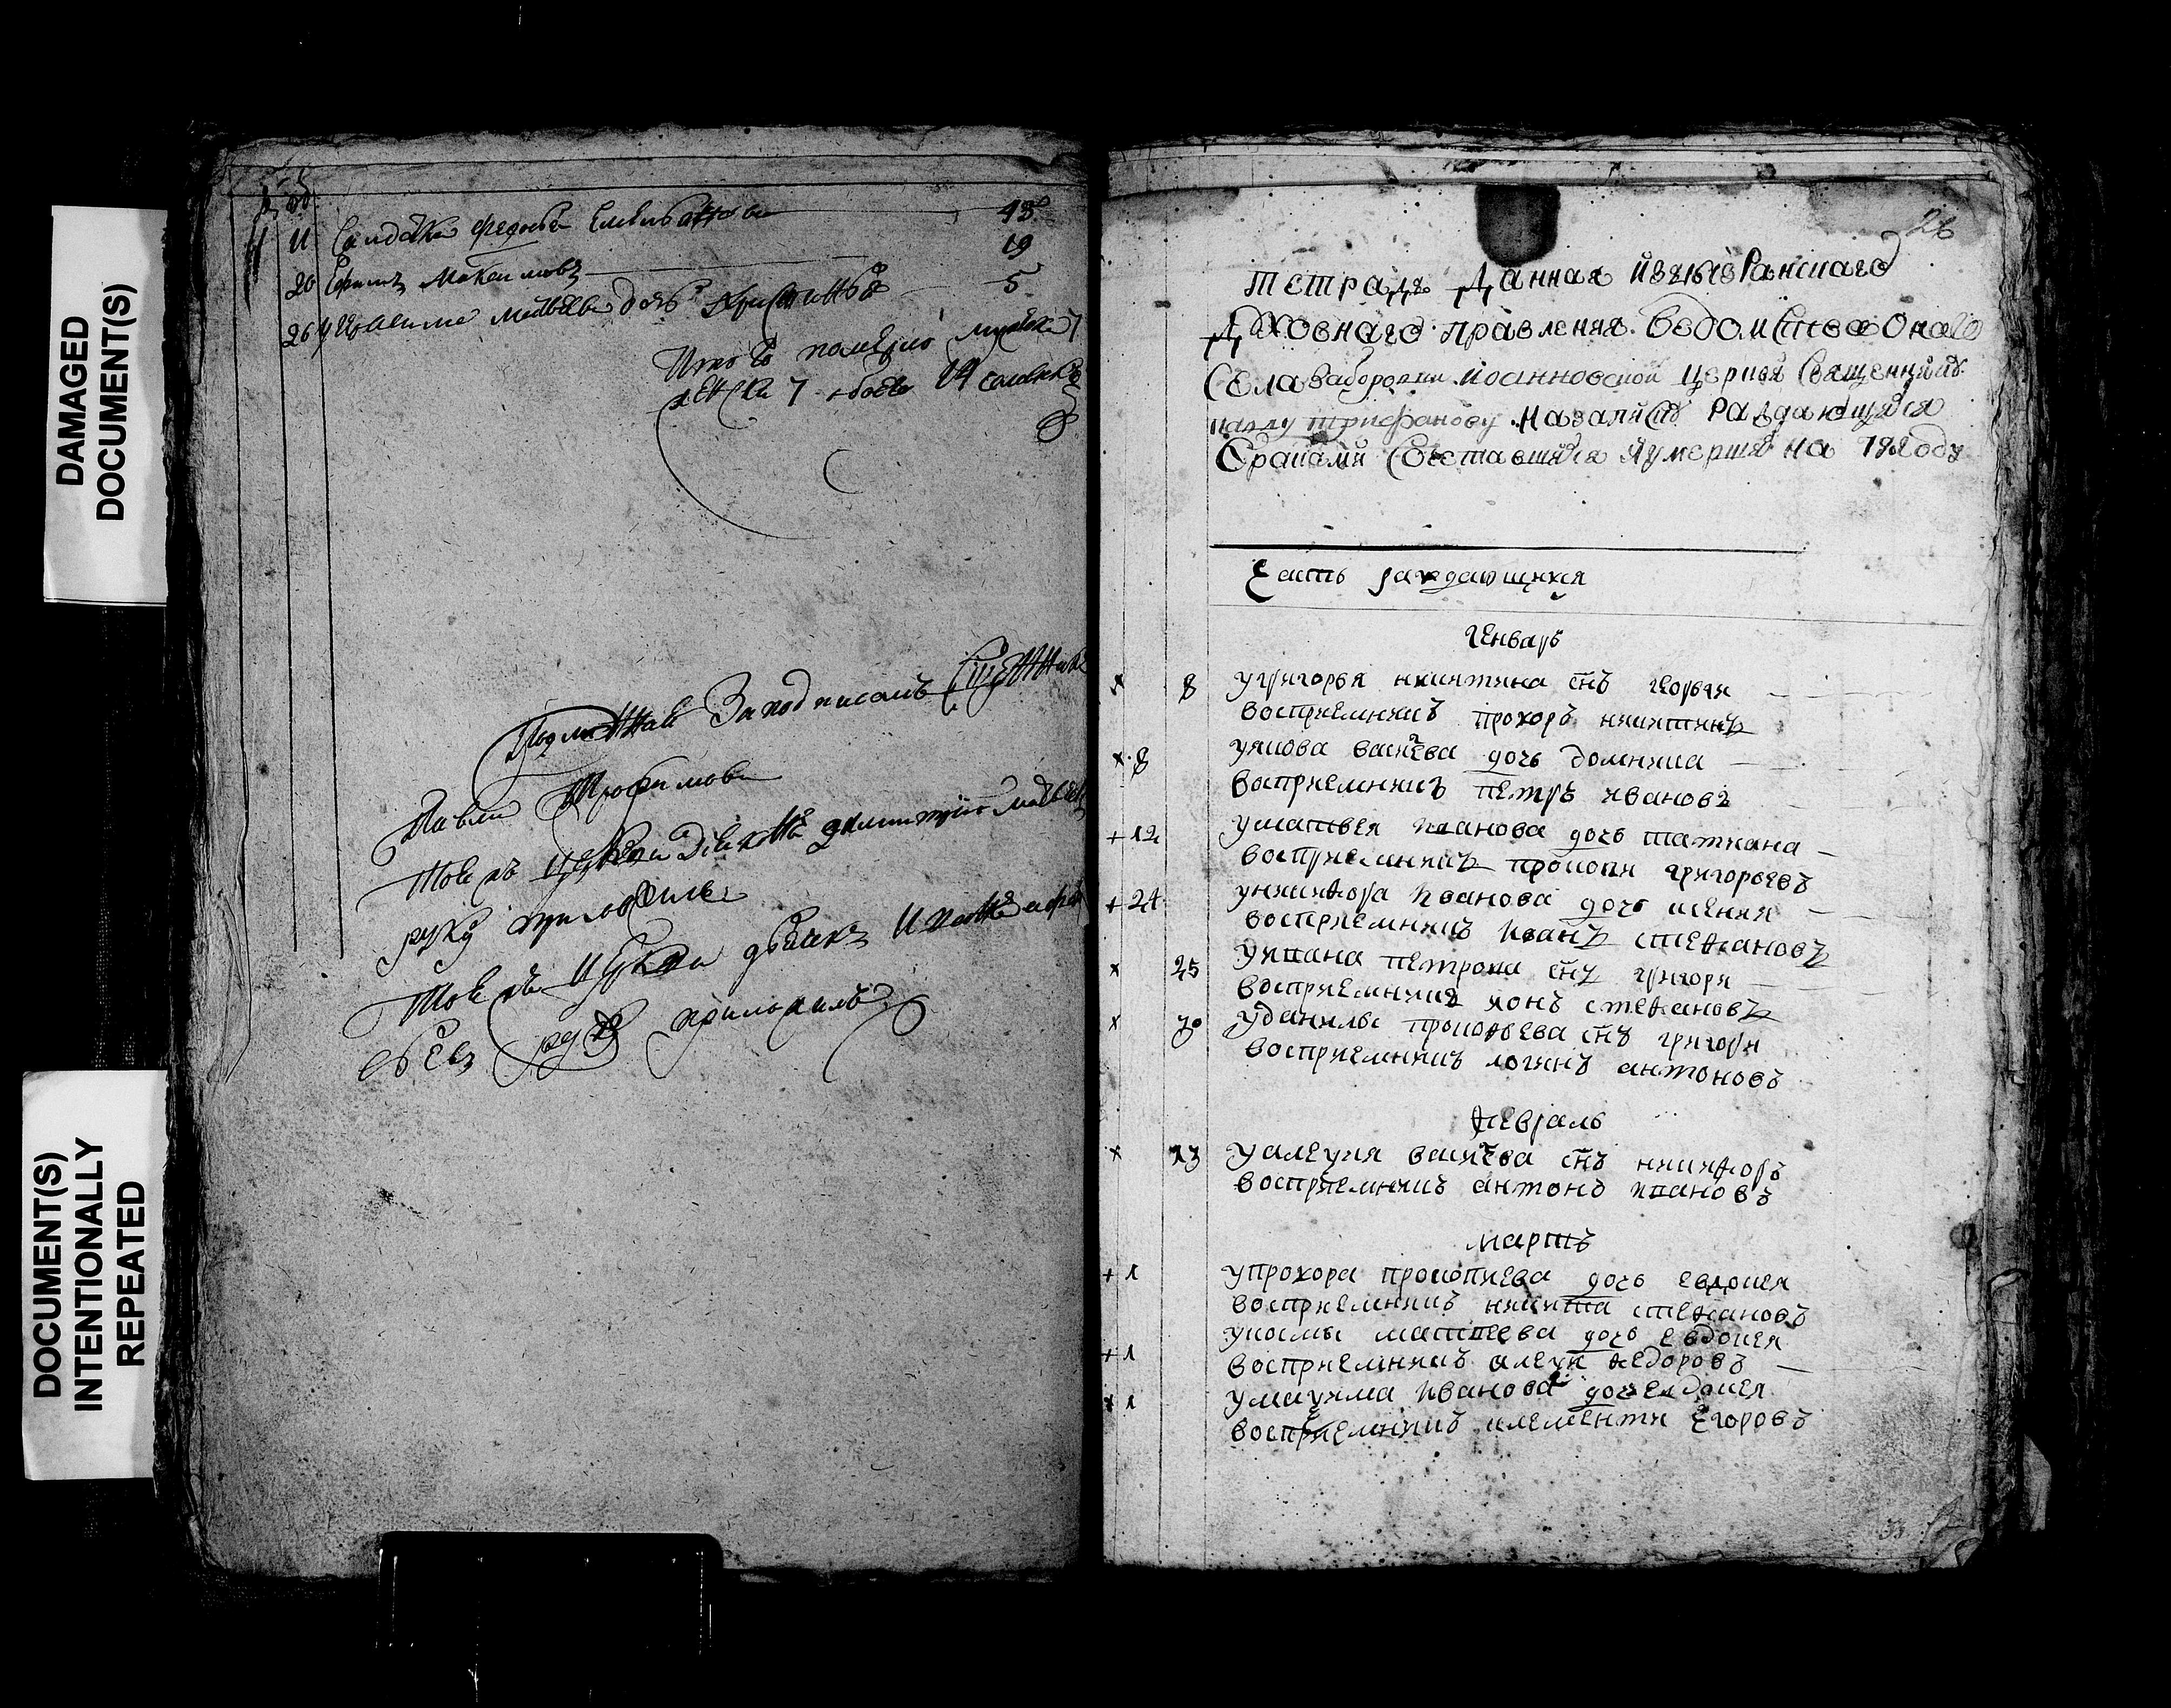 DAMAGED
DOCUMENT(S)
DOCUMENT(S)
INTENTIONALLY
REPEATED
11 Салдатка федосья Емельянова 48
20 Ефимъ Максимовъ 19
26 матвѣева дочь 5
Итого мужска 7
женска 7 обоего 14
Подлинной Заподписомъ Сщенника
Павла Трофимова
Тоежъ церкви Діаконъ матвѣевъ
руку приложилъ
Тоежъ Церкви
руку приложилъ
26
тетрадь Данная
Духовнаго правления ведомства Оного
Села Иоанновской церкви Священнику
павлу трифанову Назапис раждающихся
браками Сочетавшихся иумершихъ на
Часть раждающихся
Генварь
8 угригорья никитина снъ георгия
восприемникъ прохоръ никитинъ
8 уякова васильева дочь домника
восприемникъ петръ ивановъ
12 уматвея иванова дочь татиана
восприемникъ прокопи григорьевъ
24 уникифора иванова дочь ксения
восприемникъ иванъ стефановъ
25 уивана петрова снъ григори
восприемникъ ионъ стефановъ
30 уданилы прокофьева снъ григори
восприемникъ логинъ антоновъ
февраль
13 уалеѯия васильева снъ никифоръ
восприемникъ антонъ ивановъ
мартъ
1 упрохора прокопиева дочь евдокия
восприемникъ никита стефановъ
укосмы матвеева дочь евдокия
1 восприемникъ алеѯи федоровъ
1 умаѯима иванова дочь евдокия
восприемникъ клементи егоровъ